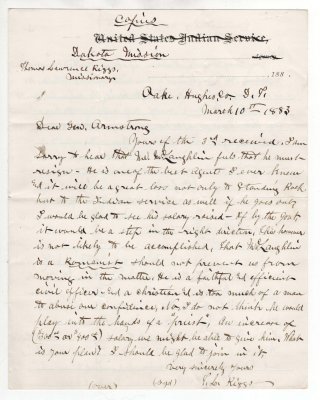 Copies
United States Indian Service,
Dakota Mission
Agency
Thomas Lawrence Riggs,
Missionary.
188 .
Oahe, Hughes Co D.T.
March 10th 1883
Dear Gen. Armstrong
Yours of the 3rd received. I am
sorry to hear that Mr. McLaughlin feels that he must
resign - He is one of the best agents I ever knew
it will be a great loss not only to Standing Rock
but to the Indian service as well if he goes only
I would be glad to see his salary raised - If by the Govt
it would be a step in the right direction, this however
is not likely to be accomplished, that McLaughlin
is a Romanist should not prevent us from
moving in the matter. He is a faithful & efficient
civil officer - and a christian & is too much of a man
to abuse our confidence. No, I do not think he would
play into the hands of a "priest". An increase of
salary we might be able to give him. What
is your plan? I should be glad to join in it
Very sincerely yours
(over) (sgd) T. L. Riggs